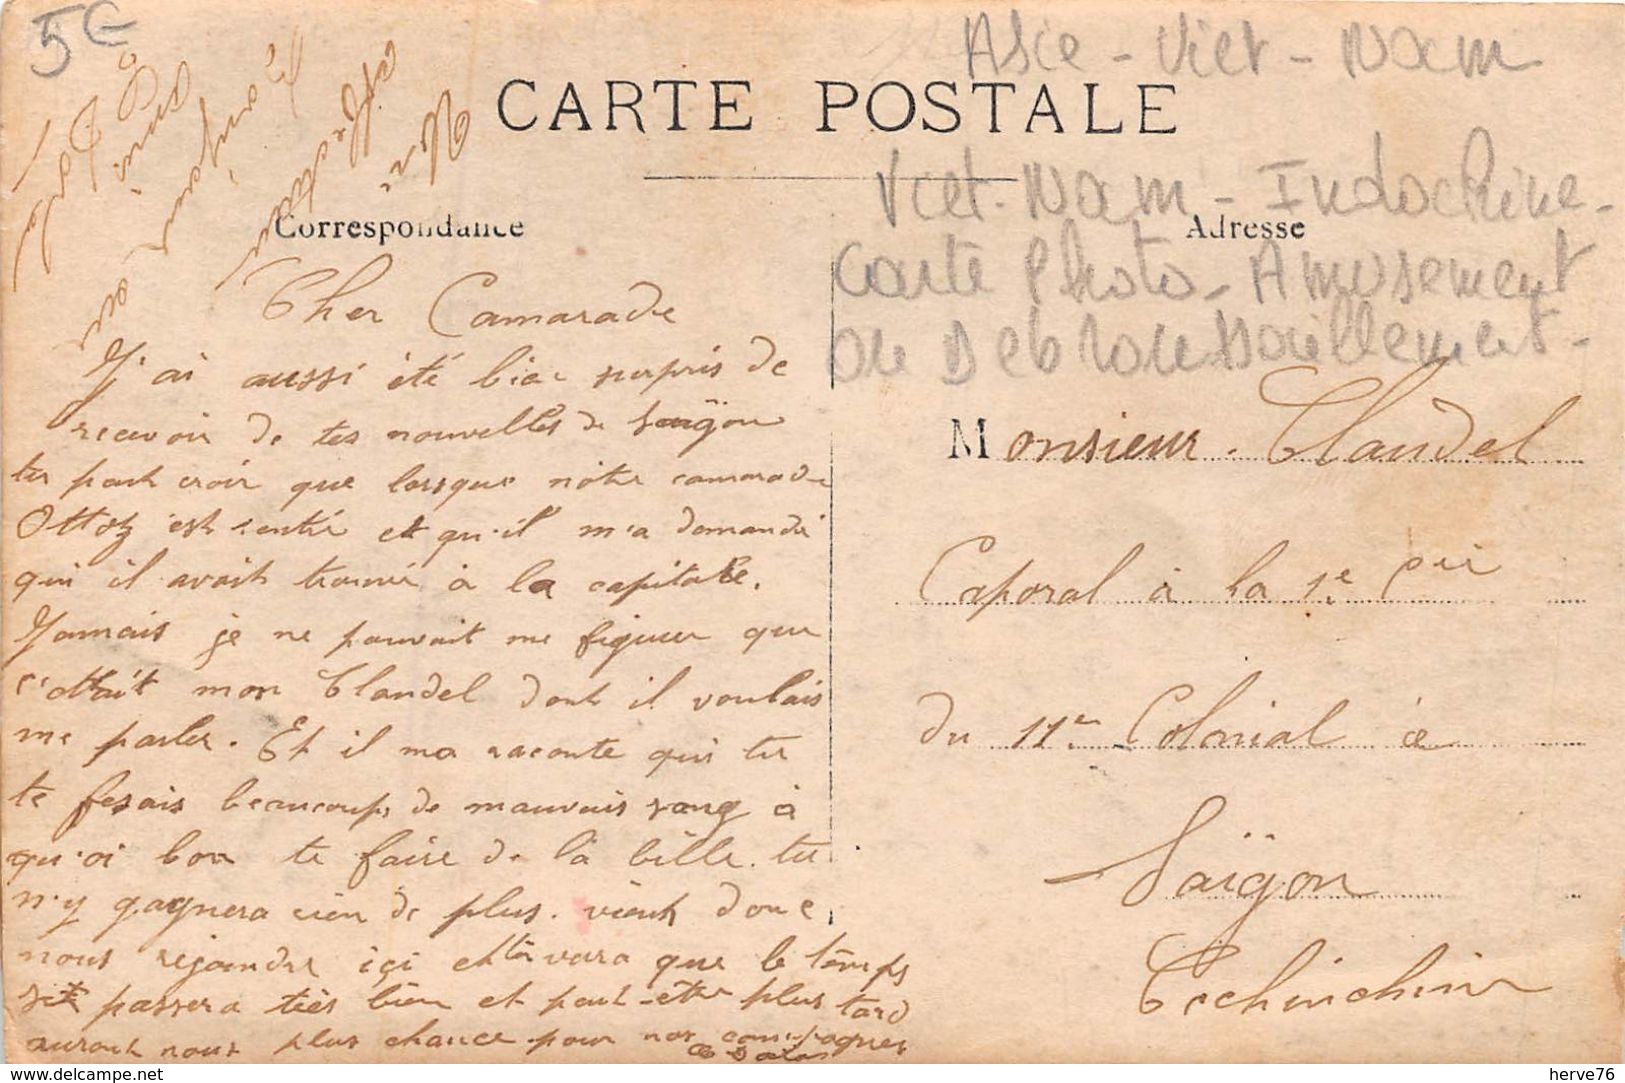 5€
Asie - Viet - Nam
CARTE POSTALE
Viet-Nam - Indochine -
Correspondance
Adresse
Carte Photo - Amusement
ou Debroussaillement -
Cher Camarade
J'ai aussi été bien surpris de
recevoir de tes nouvelles de Saïgon
tu peut croir que lorsque notre camarade
Ottoz est rentré et qu'il m'a demandé
qui il avait trouvé à la capitale.
Jamais je ne pouvait me figurer que
c'ettait mon Claudel dont il voulais
me parler. Et il ma raconte qui tu
te fesais beaucoup de mauvais sang à
qu'oi bon te faire de la bille. tu
n'y gagnera rien de plus. vient donc
nous rejoindre içi et tu vera que le temps
se passera très bien et peut-être plus tard
auront nous plus chance pour nos campagnes
Monsieur Claudel
Caporal à la 1e Cie
du 11e Colonial à
Saïgon
Cochinchine
hervé76
www.delcampe.net